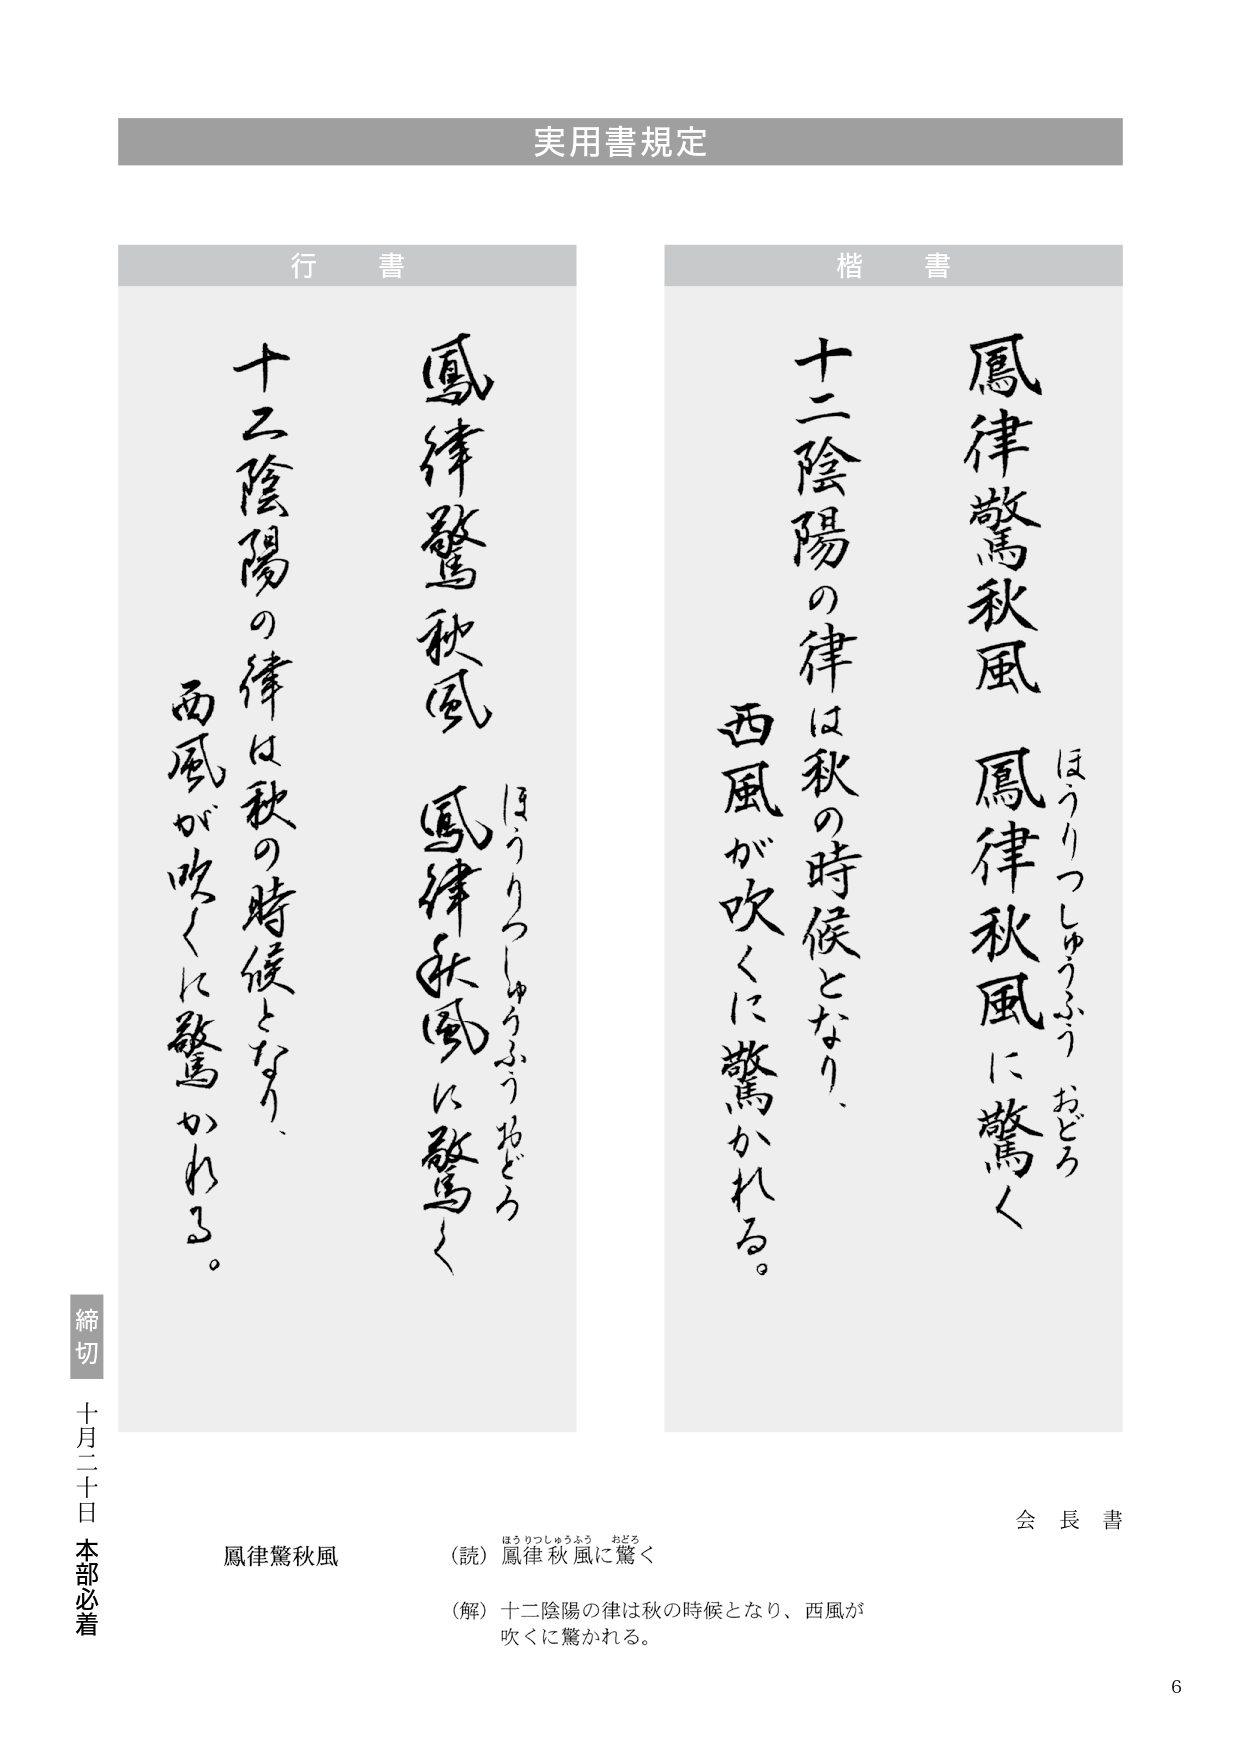 実用書規定
楷書
鳳律驚秋風　鳳律秋風に驚く
ほうりつしゅうふう　おどろ
十二陰陽の律は秋の時候となり、
西風が吹くに驚かれる。
行書
鳳律驚秋風　鳳律秋風に驚く
ほうりつしゅうふう　おどろ
十二陰陽の律は秋の時候となり、
西風が吹くに驚かれる。
締切
十月二十日 本部必着
会長書
鳳律驚秋風
ほうりつしゅうふう　おどろ
（読）鳳律秋風に驚く
（解）十二陰陽の律は秋の時候となり、西風が
吹くに驚かれる。
6